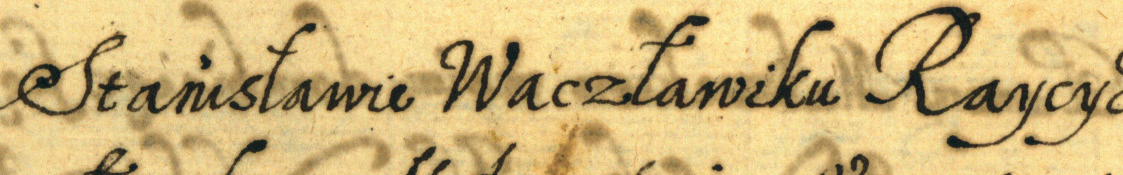 Stanisławie Waczławiku Raycy